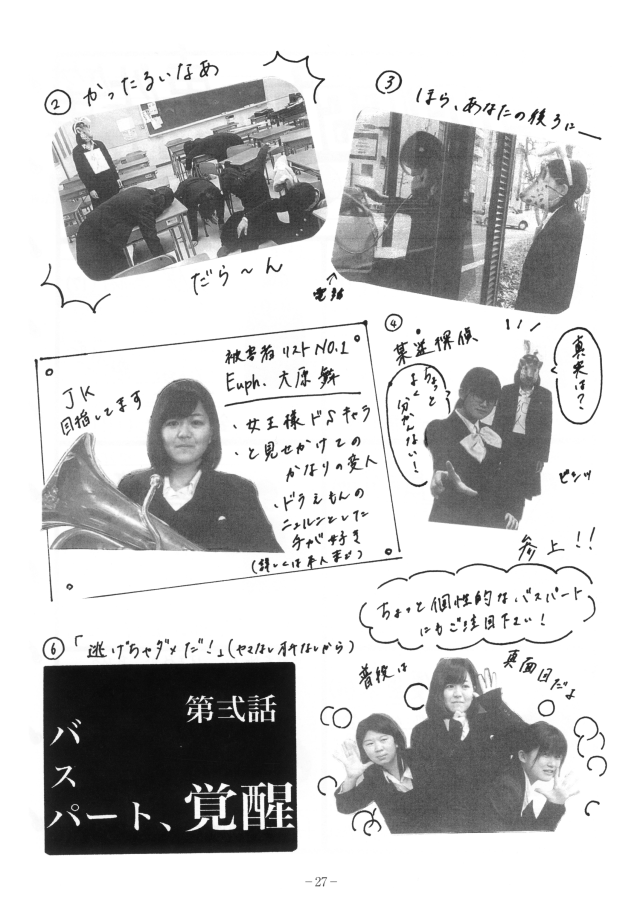 ② かったるいなあ
だら～ん
③ ほら、あなたの後ろに__
被害者リストNO.1
Euph. 大原
JK
目指してます
・女王様ドSキャラ
・と見せかけての
かなりの変人
・ドラえもんの
ニュルンとした
手が好き
(詳しくは本人まで)
④
迷探偵
ちょっと
よく分かんない!
真実は?
ビシッ
参上!!
ちょっと個性的なバスパート
にもご注目下さい!
⑥「逃げちゃダメだ!」(ヤマなしオチなしだから)
第弐話
バ
ス
パート、覚醒
普段は
真面目だよ
－27－